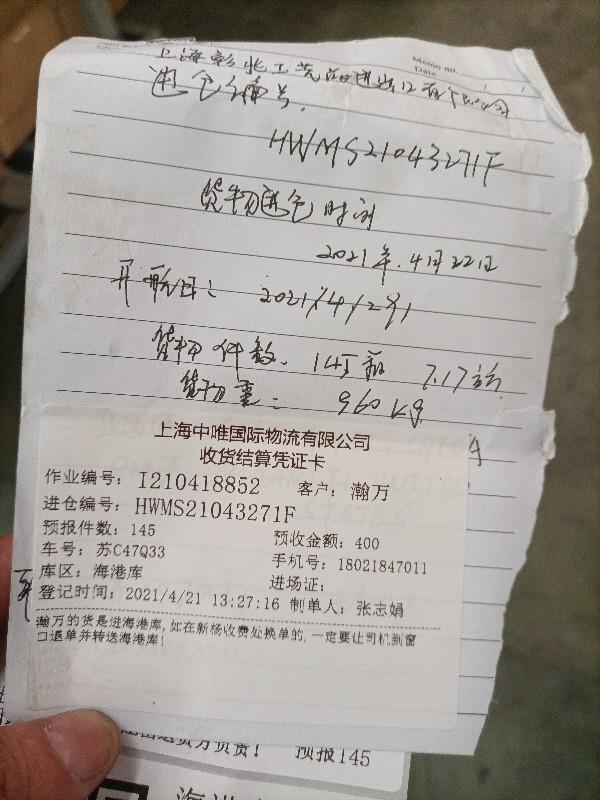 Memo no.
Date / /
上海彰北工艺品进出口有限公司
进仓编号.
HWMS21043271F
货物进仓时间
2021年.4月22日
开航日: 2021/4/29
货物件数. 145箱 7.17立方
货物重: 960kg
上海中唯国际物流有限公司
收货结算凭证卡
作业编号: I210418852 客户: 瀚万
进仓编号: HWMS21043271F
预报件数: 145 预收金额: 400
车号: 苏C47Q33 手机号: 18021847011
库区: 海港库 进场证:
登记时间: 2021/4/21 13:27:16 制单人: 张志娟
瀚万的货是进海港库, 如在新杨收费处换单的, 一定要让司机到窗
口退单并转送海港库!
预报145